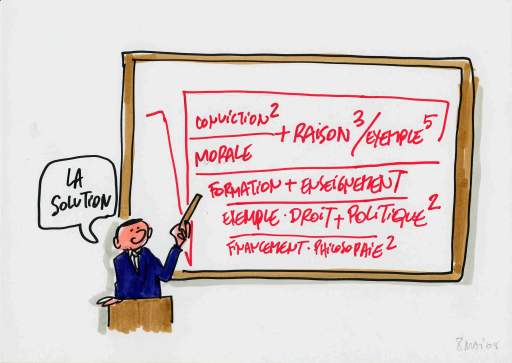 CONVICTION²
MORALE
+ RAISON³/EXEMPLE⁵
FORMATION + ENSEIGNEMENT
EXEMPLE · DROIT + POLITIQUE²
FINANCEMENT · PHILOSOPHIE²
LA
SOLUTION